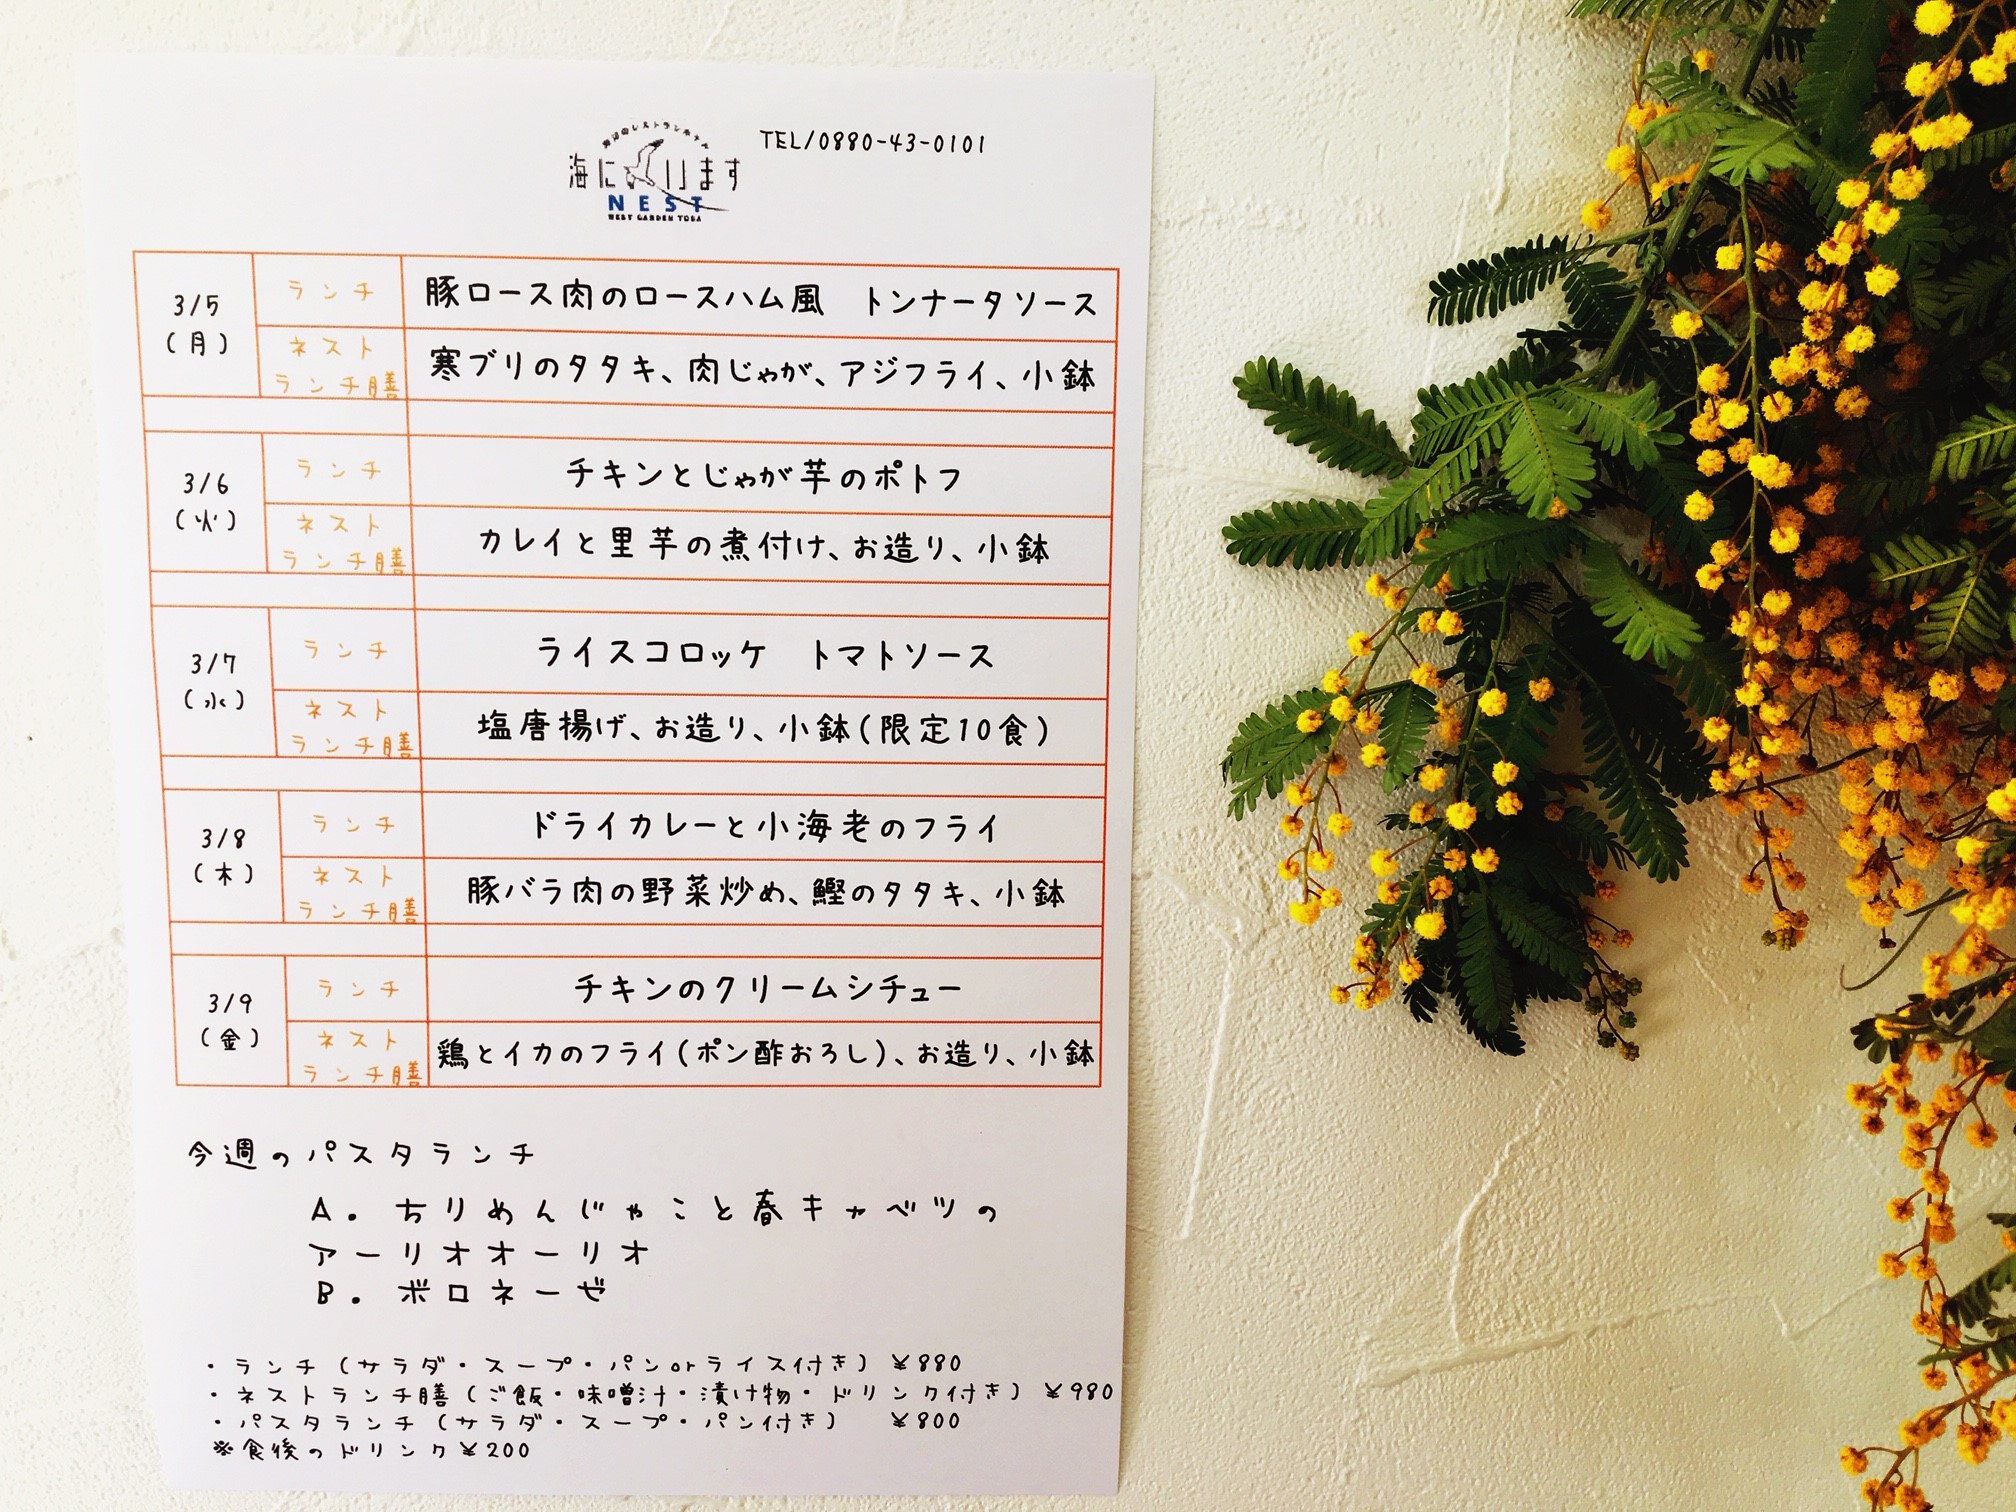 海辺のレストランホテル
海に います
NEST
WEST GARDEN TOSA
TEL/0880-43-0101
3/5
(月)
ランチ
豚ロース肉のロースハム風　トンナータソース
ネスト
ランチ膳
寒ブリのタタキ、肉じゃが、アジフライ、小鉢
3/6
(火)
ランチ
チキンとじゃが芋のポトフ
ネスト
ランチ膳
カレイと里芋の煮付け、お造り、小鉢
3/7
(水)
ランチ
ライスコロッケ　トマトソース
ネスト
ランチ膳
塩唐揚げ、お造り、小鉢(限定10食)
3/8
(木)
ランチ
ドライカレーと小海老のフライ
ネスト
ランチ膳
豚バラ肉の野菜炒め、鰹のタタキ、小鉢
3/9
(金)
ランチ
チキンのクリームシチュー
ネスト
ランチ膳
鶏とイカのフライ(ポン酢おろし)、お造り、小鉢
今週のパスタランチ
A. ちりめんじゃこと春キャベツの
アーリオオーリオ
B. ボロネーゼ
・ランチ(サラダ・スープ・パンorライス付き) ¥880
・ネストランチ膳(ご飯・味噌汁・漬け物・ドリンク付き) ¥980
・パスタランチ(サラダ・スープ・パン付き) ¥800
※食後のドリンク¥200